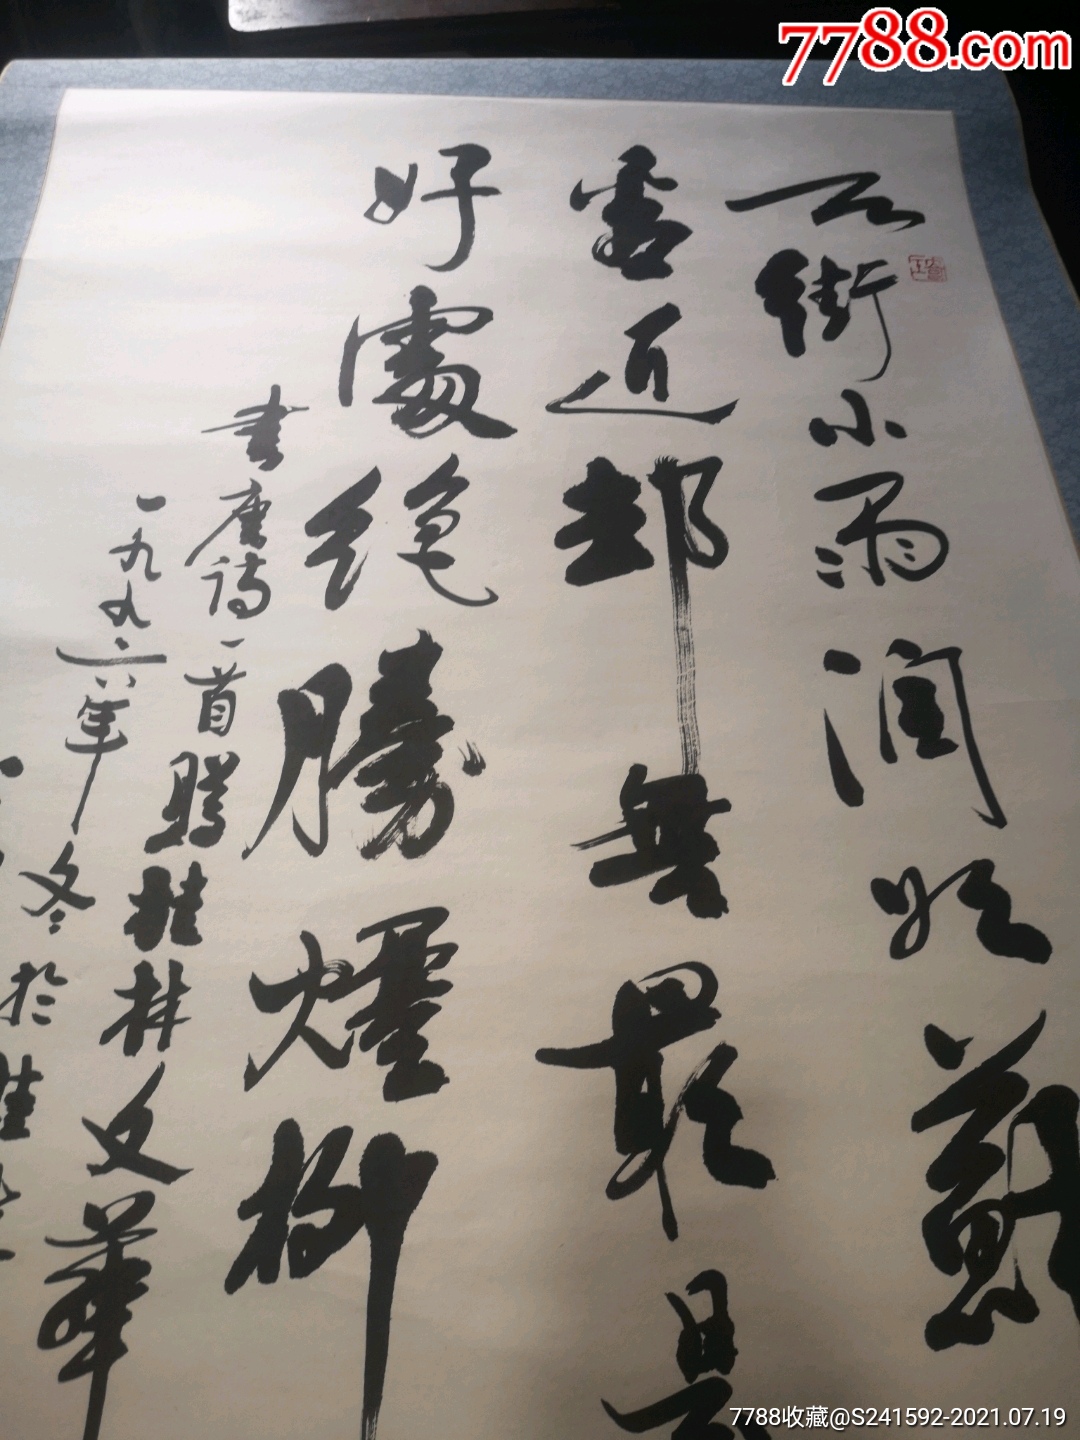 7788.com
天街小雨润如蘇
看近却無最是
好處絕勝煙柳
書唐詩一首贈桂林文華
一九九六年冬於桂
7788收藏@S241592-2021.07.19